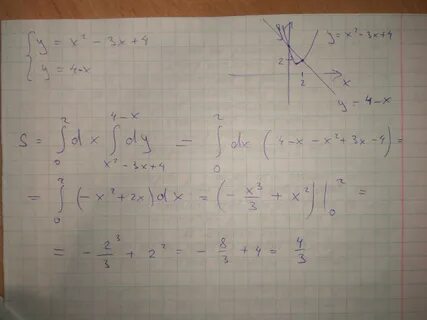 { y = x² - 3x + 4
{ y = 4-x
y
y = x² - 3x + 4
2
2
x
y = 4-x
S = ∫₀² dx ∫_{x² - 3x + 4}^{4-x} dy = ∫₀² dx (4 - x - x² + 3x - 4) =
= ∫₀² (-x² + 2x) dx = (- x³/3 + x²) |₀² =
= - 2³/3 + 2² = - 8/3 + 4 = 4/3